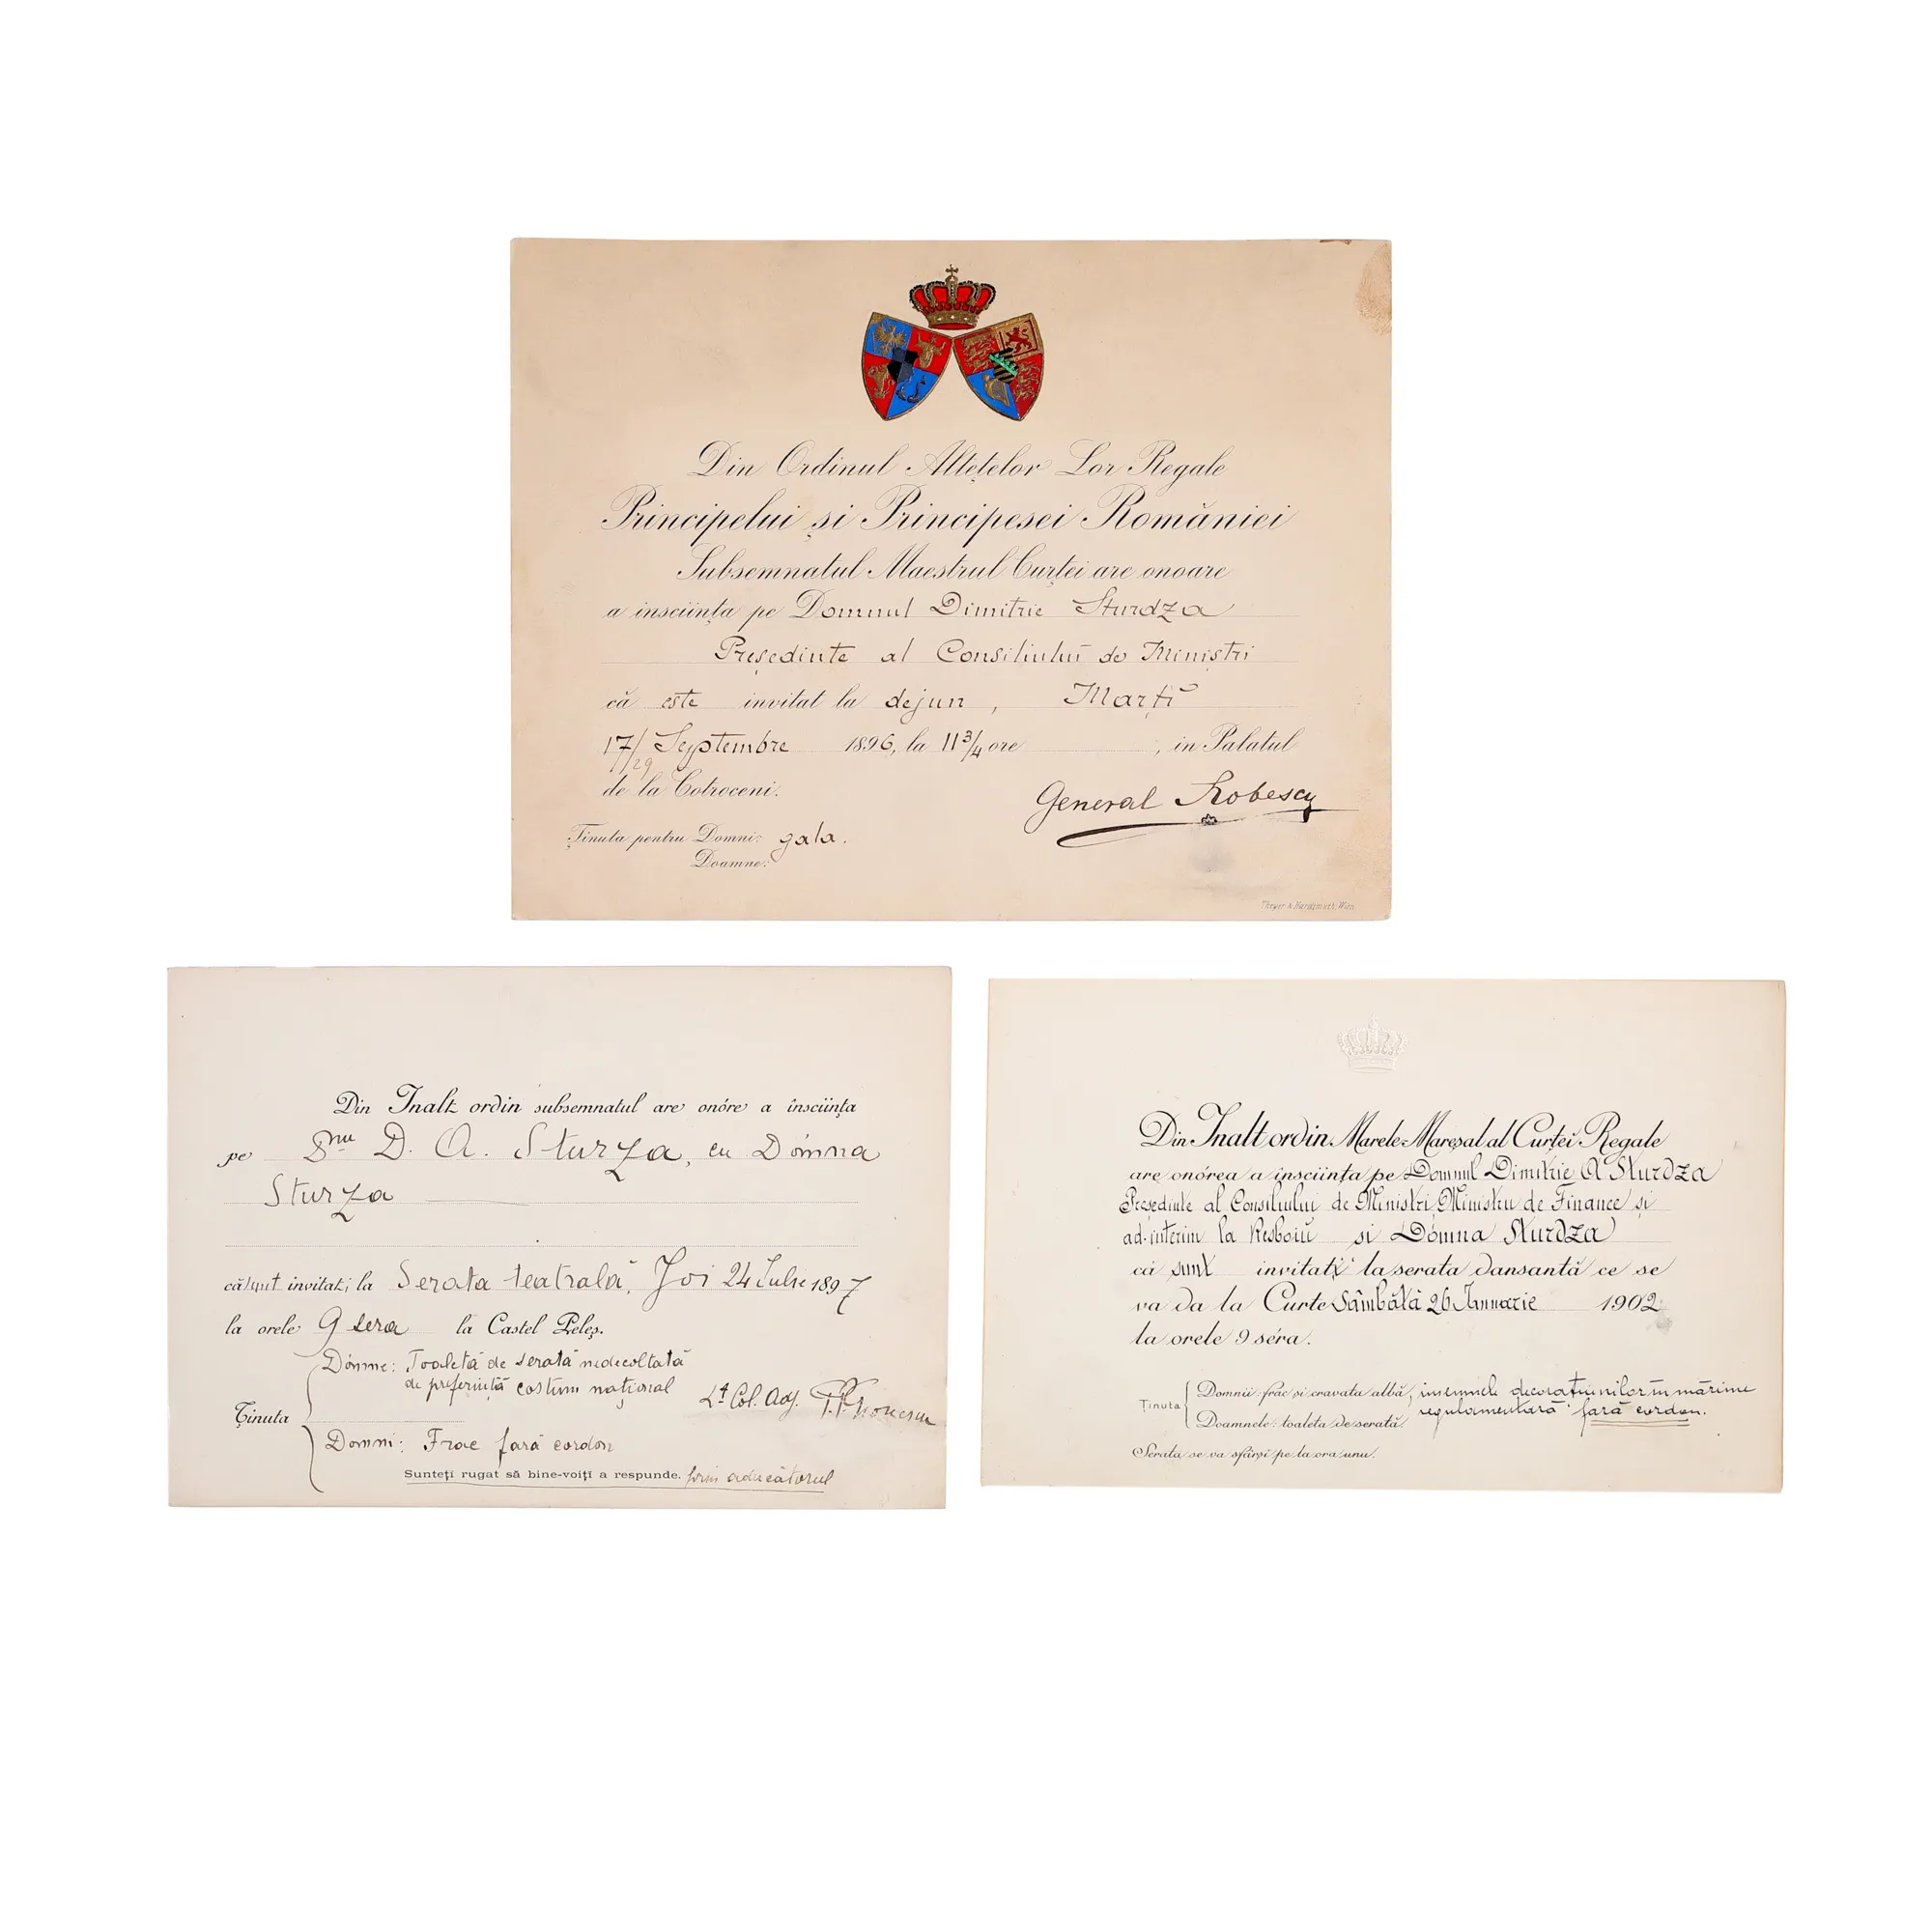 Din Ordinul Altețelor Lor Regale
Principelui și Principesei României
Subsemnatul Maestrul Curței are onoare
a insciința pe Domnul Dimitrie Sturdza
Președinte al Consiliului de Miniștri
că este invitat la dejun, Marțĭ
17/29 Septembre 1896, la 11 3/4 ore , in Palatul
de la Cotroceni.
General Robescu
Ținuta pentru Domni: gala.
Doamne:
Theyer & Hardtmuth, Wien
Din Inalt ordin subsemnatul are onóre a însciința
pe Dnu D. A. Sturza, cu Dómna
Sturza
că sunt invitați la Serata teatrală, Joi 24 Iulie 1897
la orele 9 sera la Castel Peleș.
Dómne: Toaletă de serată nedecoltată
de preferință costum național
Lt Col. Adj.
Ținuta
Domni: Frac fară cordon
Sunteți rugat să bine-voiți a respunde. prin aducătorul
Din Inalt ordin Marele-Mareșal al Curței Regale
are onórea a însciința pe Domnul Dimitrie A Sturdza
Președinte al Consiliului de Ministri, Ministru de Finance și
ad-interim la Resboiu si Dómna Sturdza
că sunt invitați la serata dansantă ce se
va da la Curte Sâmbătă 26 Ianuarie 1902
la orele 9 séra.
Ținuta
Domnii: frac și cravata albă, insemnele decorațiunilor in mărime
regulamentară fară cordon.
Doamnele: toaleta de serată.
Serata se va sfârși pe la ora unu.